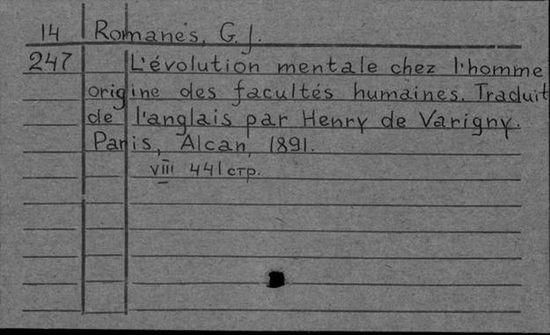 14 Romanes, G. J.
247 L'évolution mentale chez l'homme
origine des facultés humaines. Traduit
de l'anglais par Henry de Varigny.
Paris, Alcan, 1891.
VIII 441 стр.